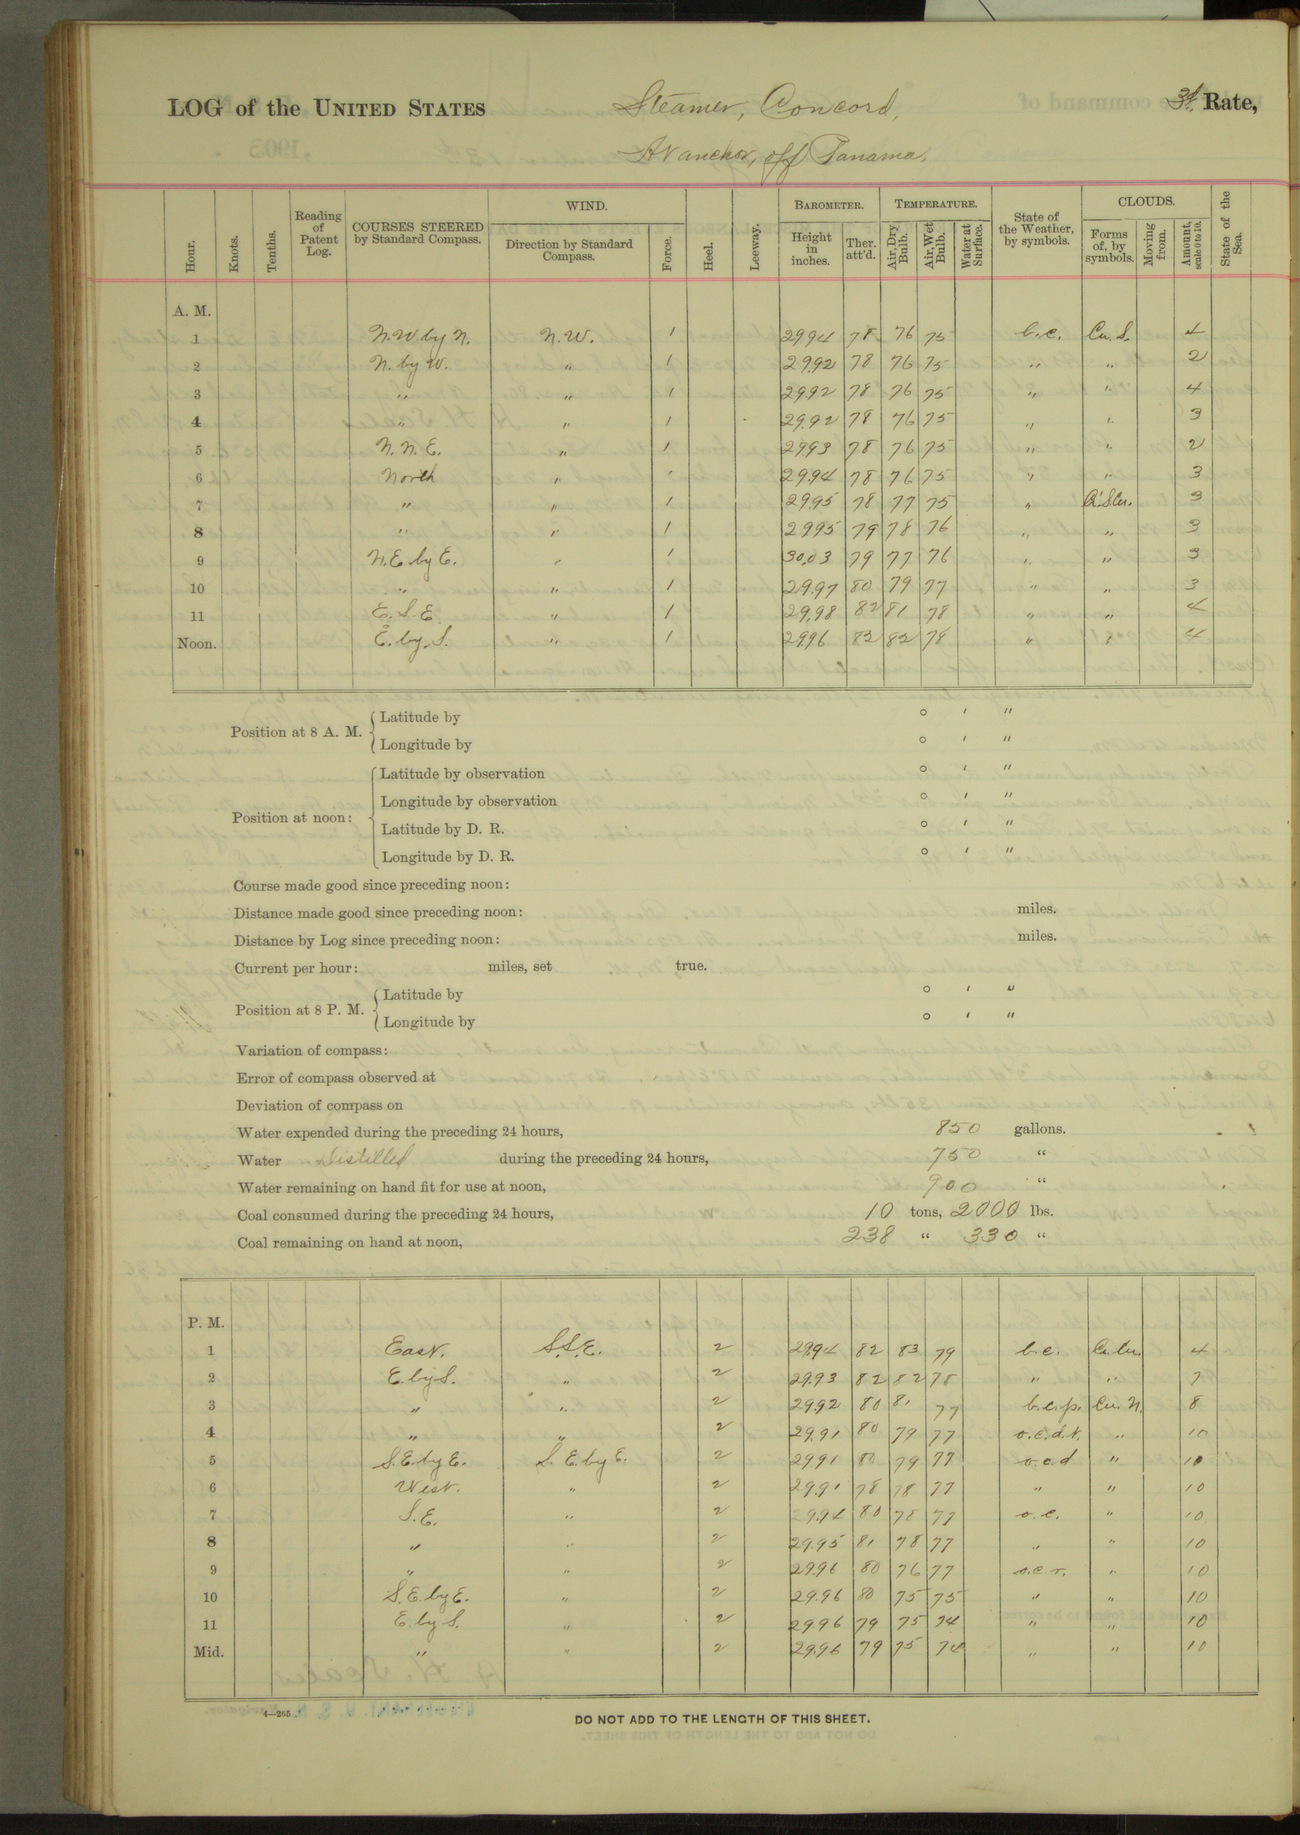 LOG of the UNITED STATES Steamer, Concord, 3d. Rate,
At anchor, off Panama.
Hour. Knots. Tenths. Reading of Patent Log. COURSES STEERED by Standard Compass. WIND. Direction by Standard Compass. Force. Heel. Leeway. BAROMETER. Height in inches. Ther. att'd. TEMPERATURE. Air, Dry Bulb. Air, Wet Bulb. Water at Surface. State of the Weather, by symbols. CLOUDS. Forms of, by symbols. Moving from. Amount, scale 0 to 10. State of the Sea.
A. M.
1 N.W by N. N.W. 1 29.94 78 76 75 b.c. Cu.S. 4
2 N. by W. " 1 29.92 78 76 75 " " 2
3 " " 1 29.92 78 76 75 " " 4
4 " " 1 29.92 78 76 75 " " 3
5 N.N.E. " 1 29.93 78 76 75 " " 2
6 North " 1 29.94 78 76 75 " " 3
7 " " 1 29.95 78 77 75 " Ci.S.Cu. 3
8 " " 1 29.95 79 78 76 " " 3
9 N.E. by E. " 1 30.03 79 77 76 " " 3
10 " " 1 29.97 80 79 77 " " 3
11 E.S.E. " 1 29.98 82 81 78 " " 4
Noon. E. by S. " 1 29.96 82 82 78 " " 4
Position at 8 A. M. Latitude by ° ′ ″
Longitude by ° ′ ″
Position at noon: Latitude by observation ° ′ ″
Longitude by observation ° ′ ″
Latitude by D. R. ° ′ ″
Longitude by D. R. ° ′ ″
Course made good since preceding noon:
Distance made good since preceding noon: miles.
Distance by Log since preceding noon: miles.
Current per hour: miles, set true.
Position at 8 P. M. Latitude by ° ′ ″
Longitude by ° ′ ″
Variation of compass:
Error of compass observed at
Deviation of compass on
Water expended during the preceding 24 hours, 850 gallons.
Water Distilled during the preceding 24 hours, 750 "
Water remaining on hand fit for use at noon, 900 "
Coal consumed during the preceding 24 hours, 10 tons, 2000 lbs.
Coal remaining on hand at noon, 238 " 330 "
P. M.
1 East. S.S.E. 2 29.94 82 83 79 b.c. Cu. 4
2 E. by S. " 2 29.93 82 82 78 " " 7
3 " " 2 29.92 80 81 77 b.c.p. Cu. N. 8
4 " " 2 29.91 80 79 77 o.c.d.t. " 10
5 S.E. by E. S.E. by E. 2 29.91 80 79 77 o.c.d " 10
6 West. " 2 29.91 78 78 77 " " 10
7 S.E. " 2 29.94 80 78 77 o.c. " 10
8 " " 2 29.95 81 78 77 " " 10
9 " " 2 29.96 80 76 77 o.c.r. " 10
10 S.E. by E. " 2 29.96 80 75 75 " " 10
11 E. by S. " 2 29.96 79 75 74 " " 10
Mid. " " 2 29.96 79 75 74 " " 10
4—265
DO NOT ADD TO THE LENGTH OF THIS SHEET.